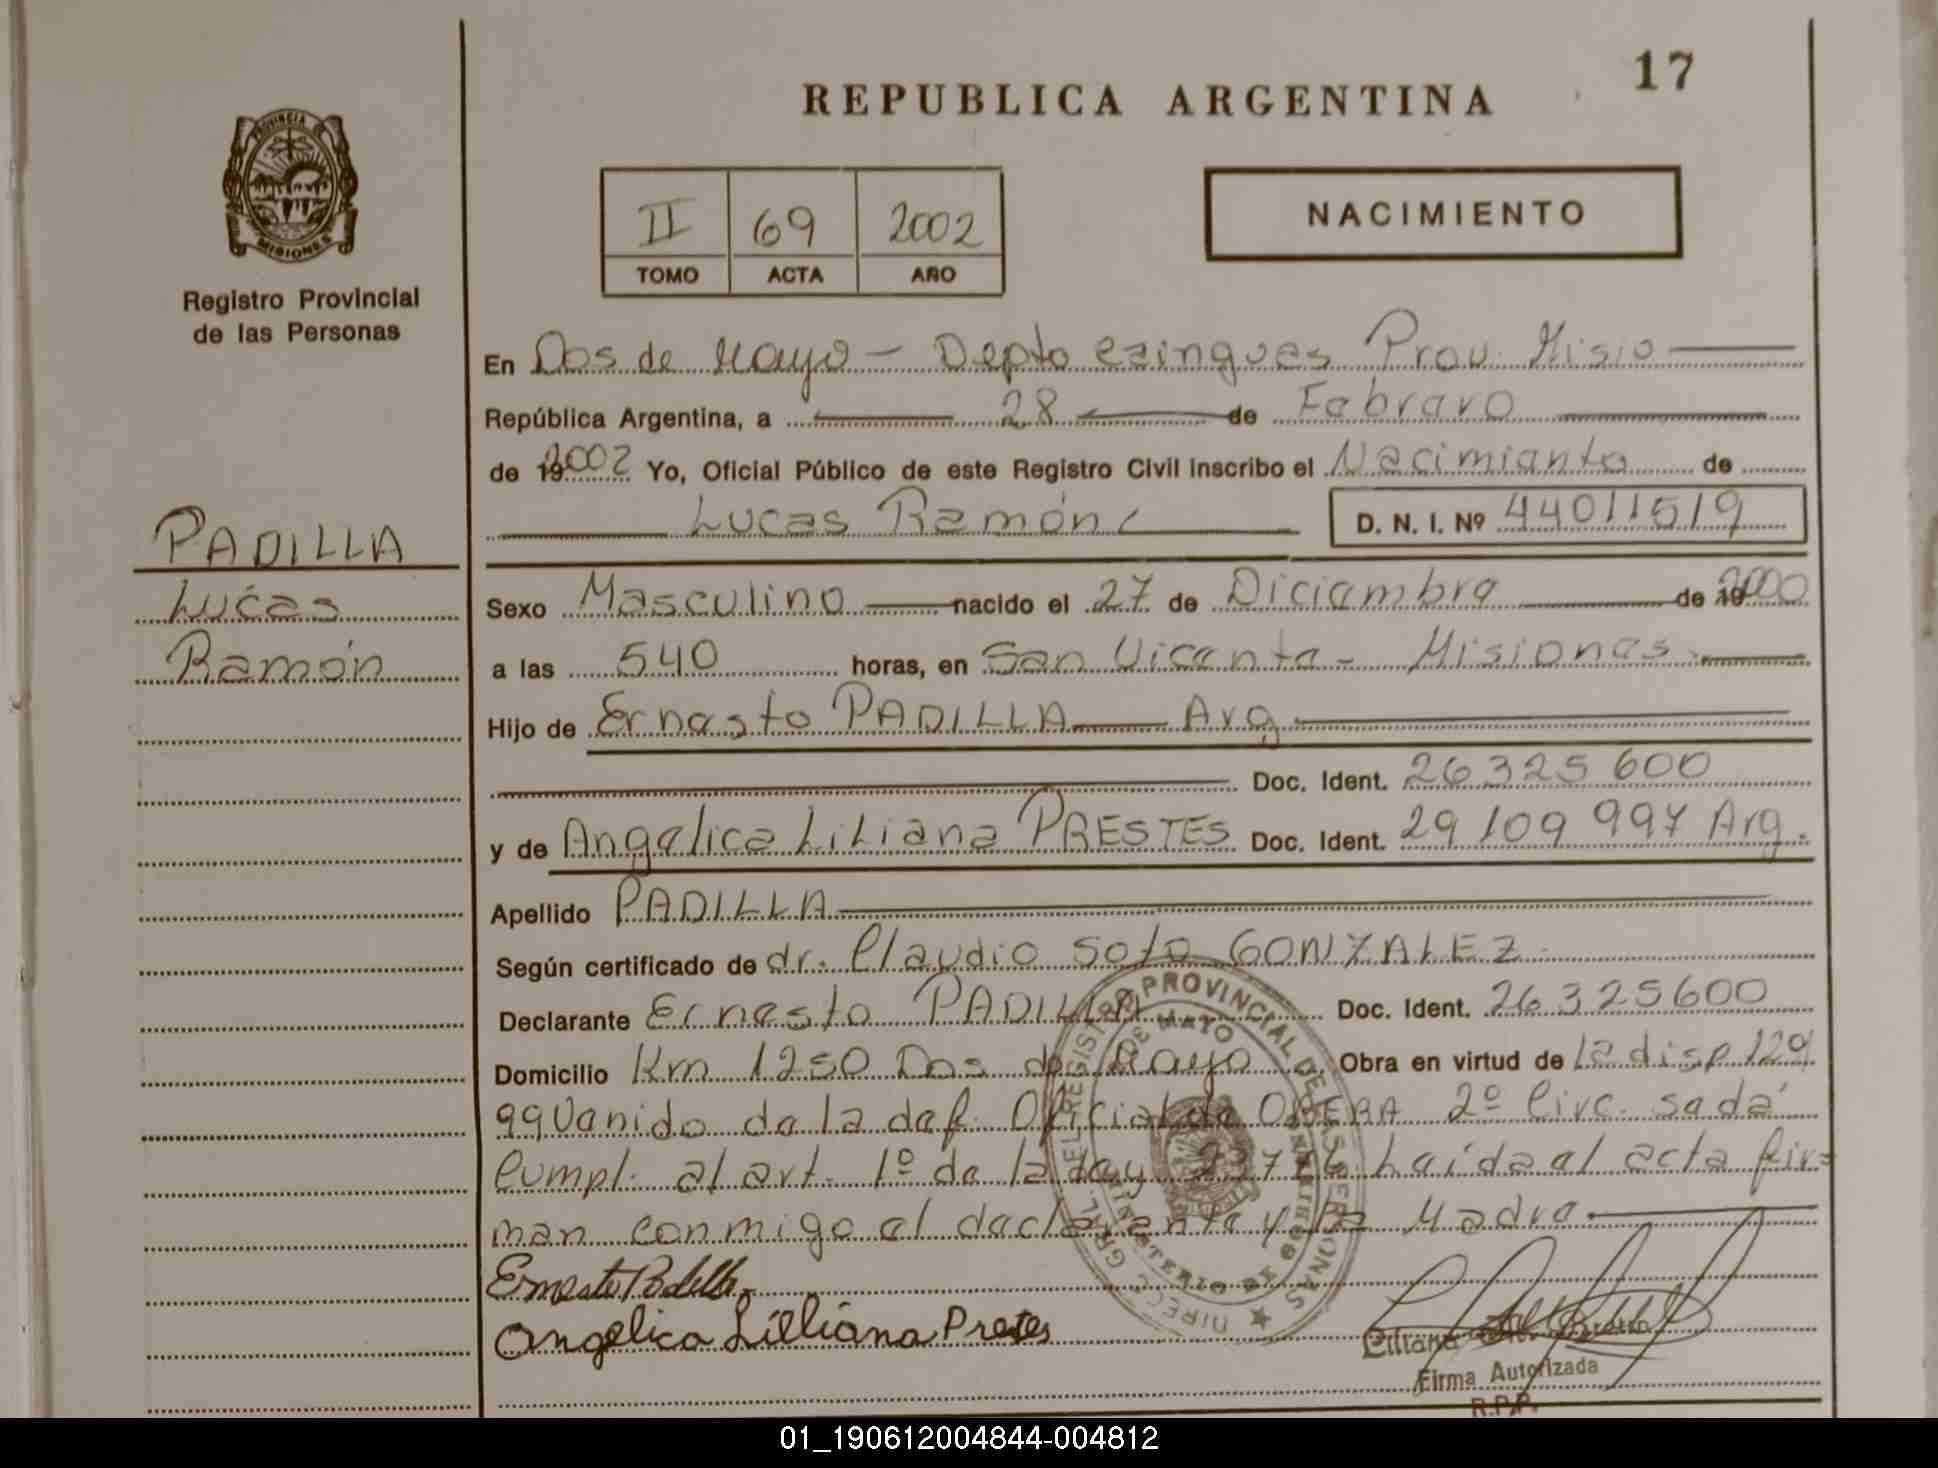 17
REPUBLICA ARGENTINA
PROVINCIA DE
MISIONES
Registro Provincial
de las Personas
II 69 2002
TOMO ACTA AÑO
NACIMIENTO
En Dos de Mayo - Depto Cainguas Prov. Misio
República Argentina, a 28 de Febrero
de 19 2002 Yo, Oficial Público de este Registro Civil inscribo el Nacimiento de
Lucas Ramón D. N. I. Nº 44011519
PADILLA
Lucas
Ramón
Sexo Masculino nacido el 27 de Diciembre de 19 2000
a las 540 horas, en San Vicente - Misiones
Hijo de Ernesto PADILLA Arg
Doc. Ident. 26325600
y de Angelica Liliana PRESTES Doc. Ident. 29109997 Arg.
Apellido PADILLA
Según certificado de dr. Claudio Soto GONZALEZ
Declarante Ernesto PADILLA Doc. Ident. 26325600
Domicilio Km 1250 Dos de Mayo Obra en virtud de la disp 129
99 Venido de la def. Oficial de OBERA 2º Circ. se da
Cumpl. al art. 1º de la ley Leída el acta fir=
man conmigo el declarante y la Madre
Ernesto Padilla
Angelica Lilliana Prestes
Liliana
Firma Autorizada
R.P.P.
01_190612004844-004812